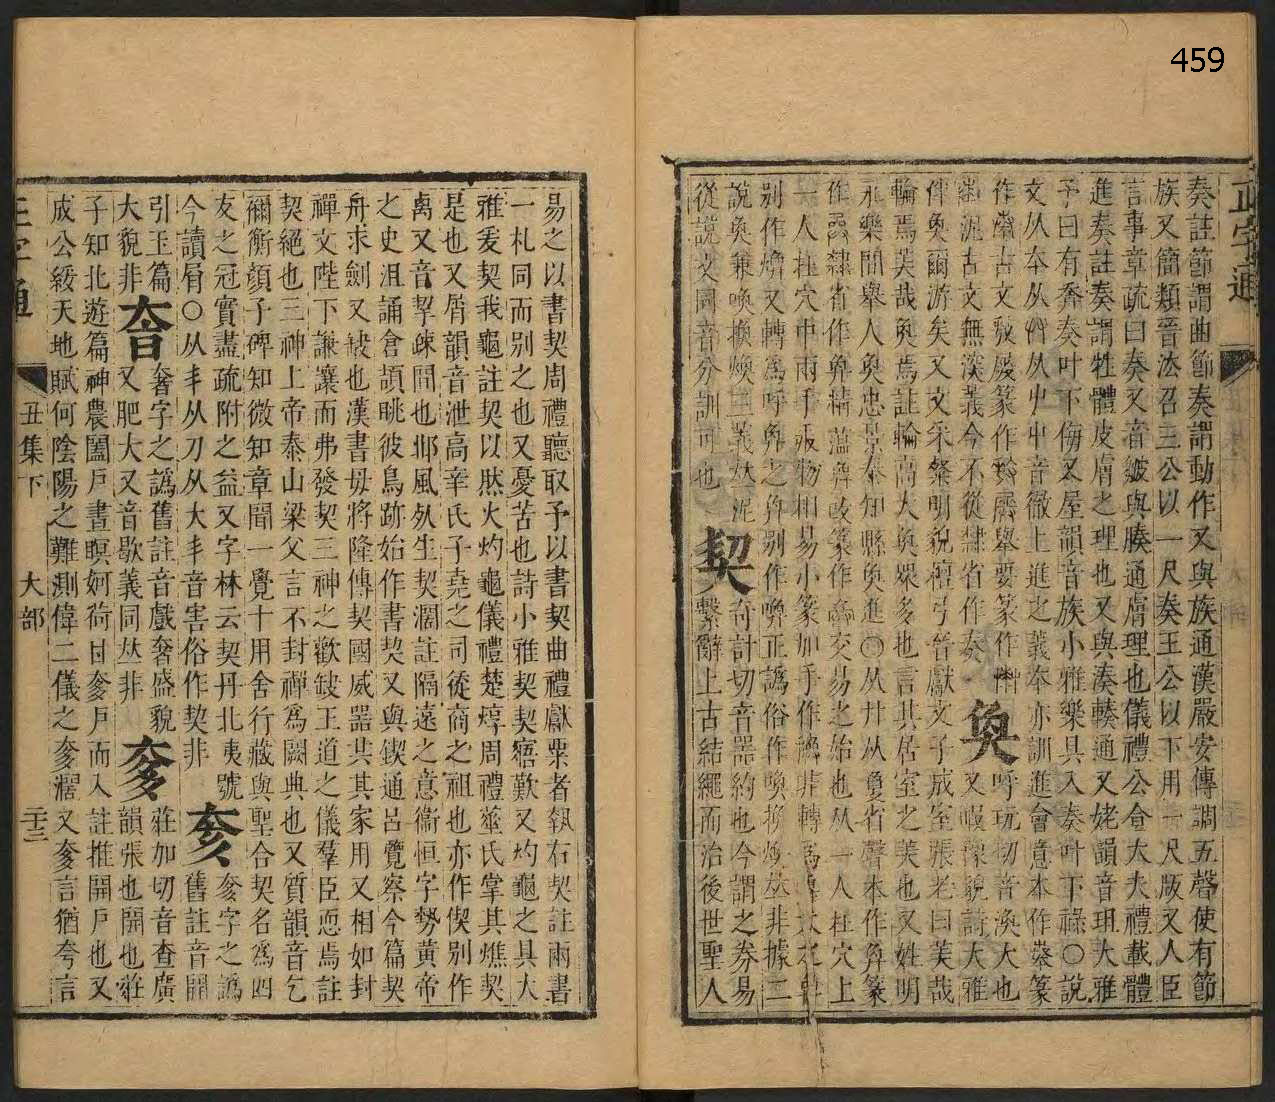 459
正字通
奏註節謂曲節奏謂動作又與族通漢嚴安傳調五聲使有節
族又簡類晉法召三公以一尺奏王公以下用一尺版又人臣
言事章疏曰奏又音皴與腠通膚理也儀禮公食大夫禮載體
進奏註奏謂牲體皮膚之理也又與湊輳通又姥韻音珇大雅
予曰有奔奏叶下侮又屋韻音族小雅樂具入奏叶下祿○說
文从夲从廾从屮屮音徹上進之義夲亦訓進會意本作
篆作 古文 篆作 舉要篆作
泥古文無深義今不從隸省作奏 奐 呼玩切音渙大也又 貌詩大雅
伴奐爾游矣又文采粲明貌禮弓晉獻文子成室張老曰美哉
輪焉美哉奐焉註輪高大奐眾多也言其居室之美也又姓明
永樂間舉人奐忠景泰知縣奐進○从廾从敻省聲本作 篆
作 隸省作 精蘊 改篆作 交易之始也从一人在穴上
一人在穴中兩手 物相易小篆加手作 轉為
別作 又轉為呼 之 別作 正譌俗作喚換煥 非據二
說奐兼喚換煥三義 泥
從說文同音分訓可也 契 奇計切音器約也今謂之券易
繫辭上古結繩而治後世聖人
易之以書契周禮聽取予以書契曲禮獻粟者執右契註兩書
一札同而別之也又憂苦也詩小雅契契寤歎又灼龜之具大
雅爰契我龜註契以然火灼龜儀禮楚焞周禮菙氏掌其燋契
是也又屑韻音泄高辛氏子堯之司徒商之祖也亦作偰別作
卨又音挈疎闊也邶風死生契濶註隔遠之意衞恒字勢黃帝
之史沮誦倉頡眺彼鳥跡始作書契又與鍥通呂覽察今篇契
舟求劍又缺也漢書毋將隆傳契國威器共其家用又相如封
禪文陛下謙讓而弗發契三神之歡缺王道之儀羣臣恧焉註
契絕也三神上帝泰山梁父言不封禪爲闕典也又質韻音乞
禰衡顏子碑知微知章聞一覺十用舍行藏與聖合契名爲四
友之冠實盡疏附之益又字林云契丹北夷號
今讀屑○从丯从刀从大丯音害俗作契非 奒 奓字之譌
舊註音開
引玉篇
大貌非 奆 奢字之譌舊註音戲奢盛貌
又肥大又音歇義同 非 奓 莊加切音查廣
韻張也開也莊
子知北遊篇神農闔戶晝瞑妸荷甘奓戶而入註推開戶也又
成公綏天地賦何陰陽之難測偉二儀之奓濶又奓言猶夸言
正字通
丑集下
大部
二十三